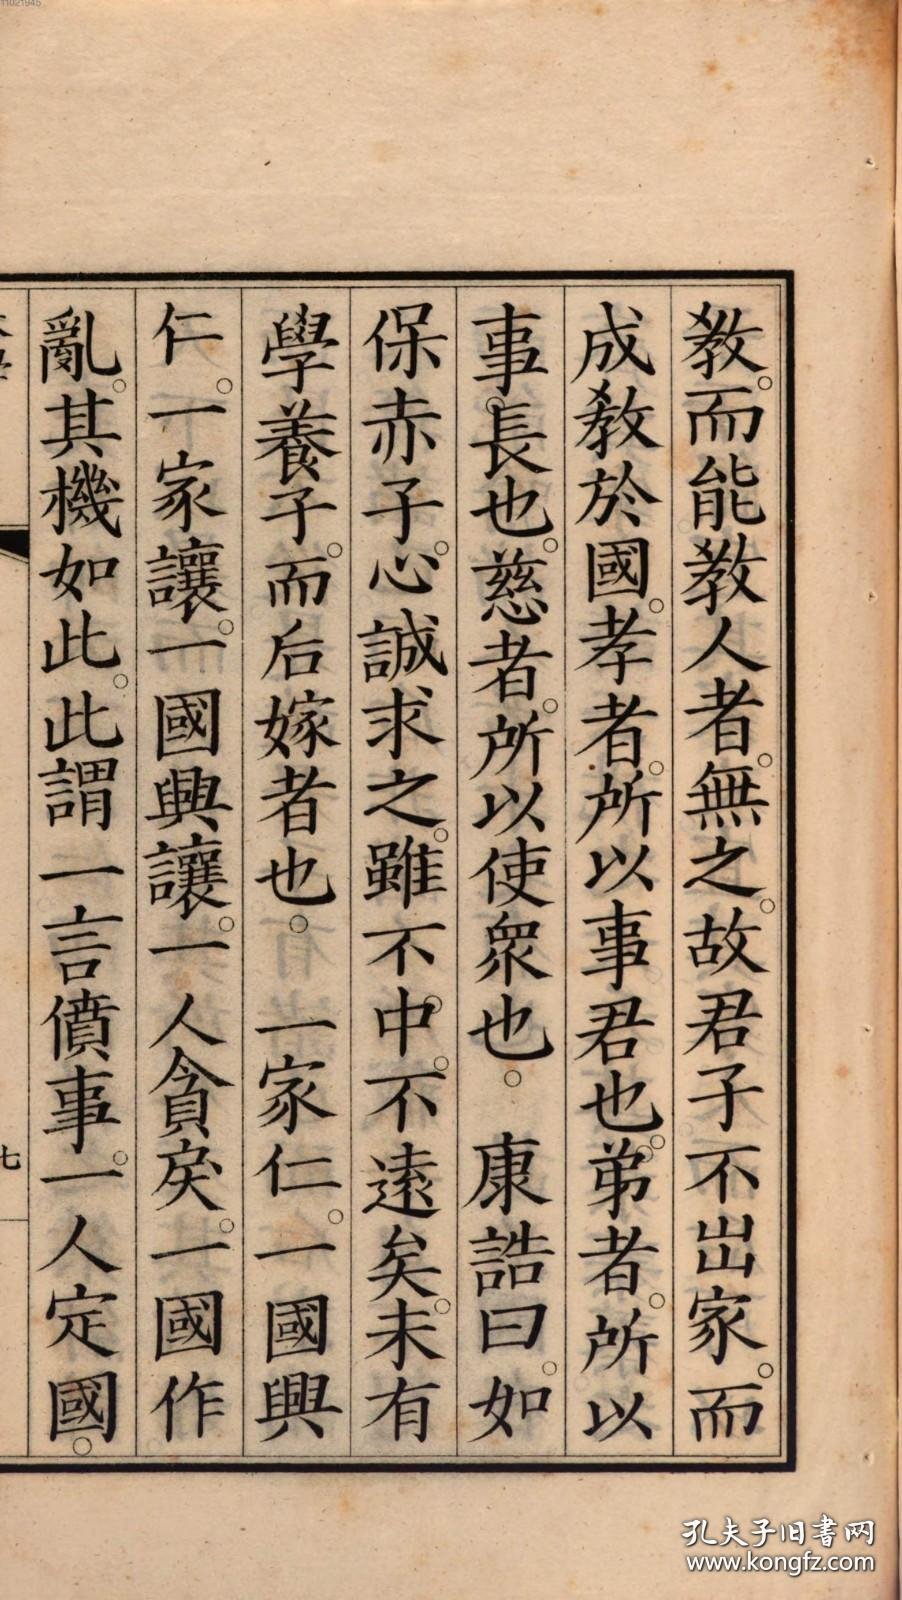 11021945
教。而能教人者。無之。故君子不出家。而
成教於國。孝者。所以事君也。弟者。所以
事長也。慈者。所以使衆也。康誥曰。如
保赤子。心誠求之。雖不中。不遠矣。未有
學養子。而后嫁者也。一家仁。一國興
仁。一家讓。一國興讓。一人貪戾。一國作
亂。其機如此。此謂一言僨事。一人定國。
七
孔夫子旧書网
www.kongfz.com